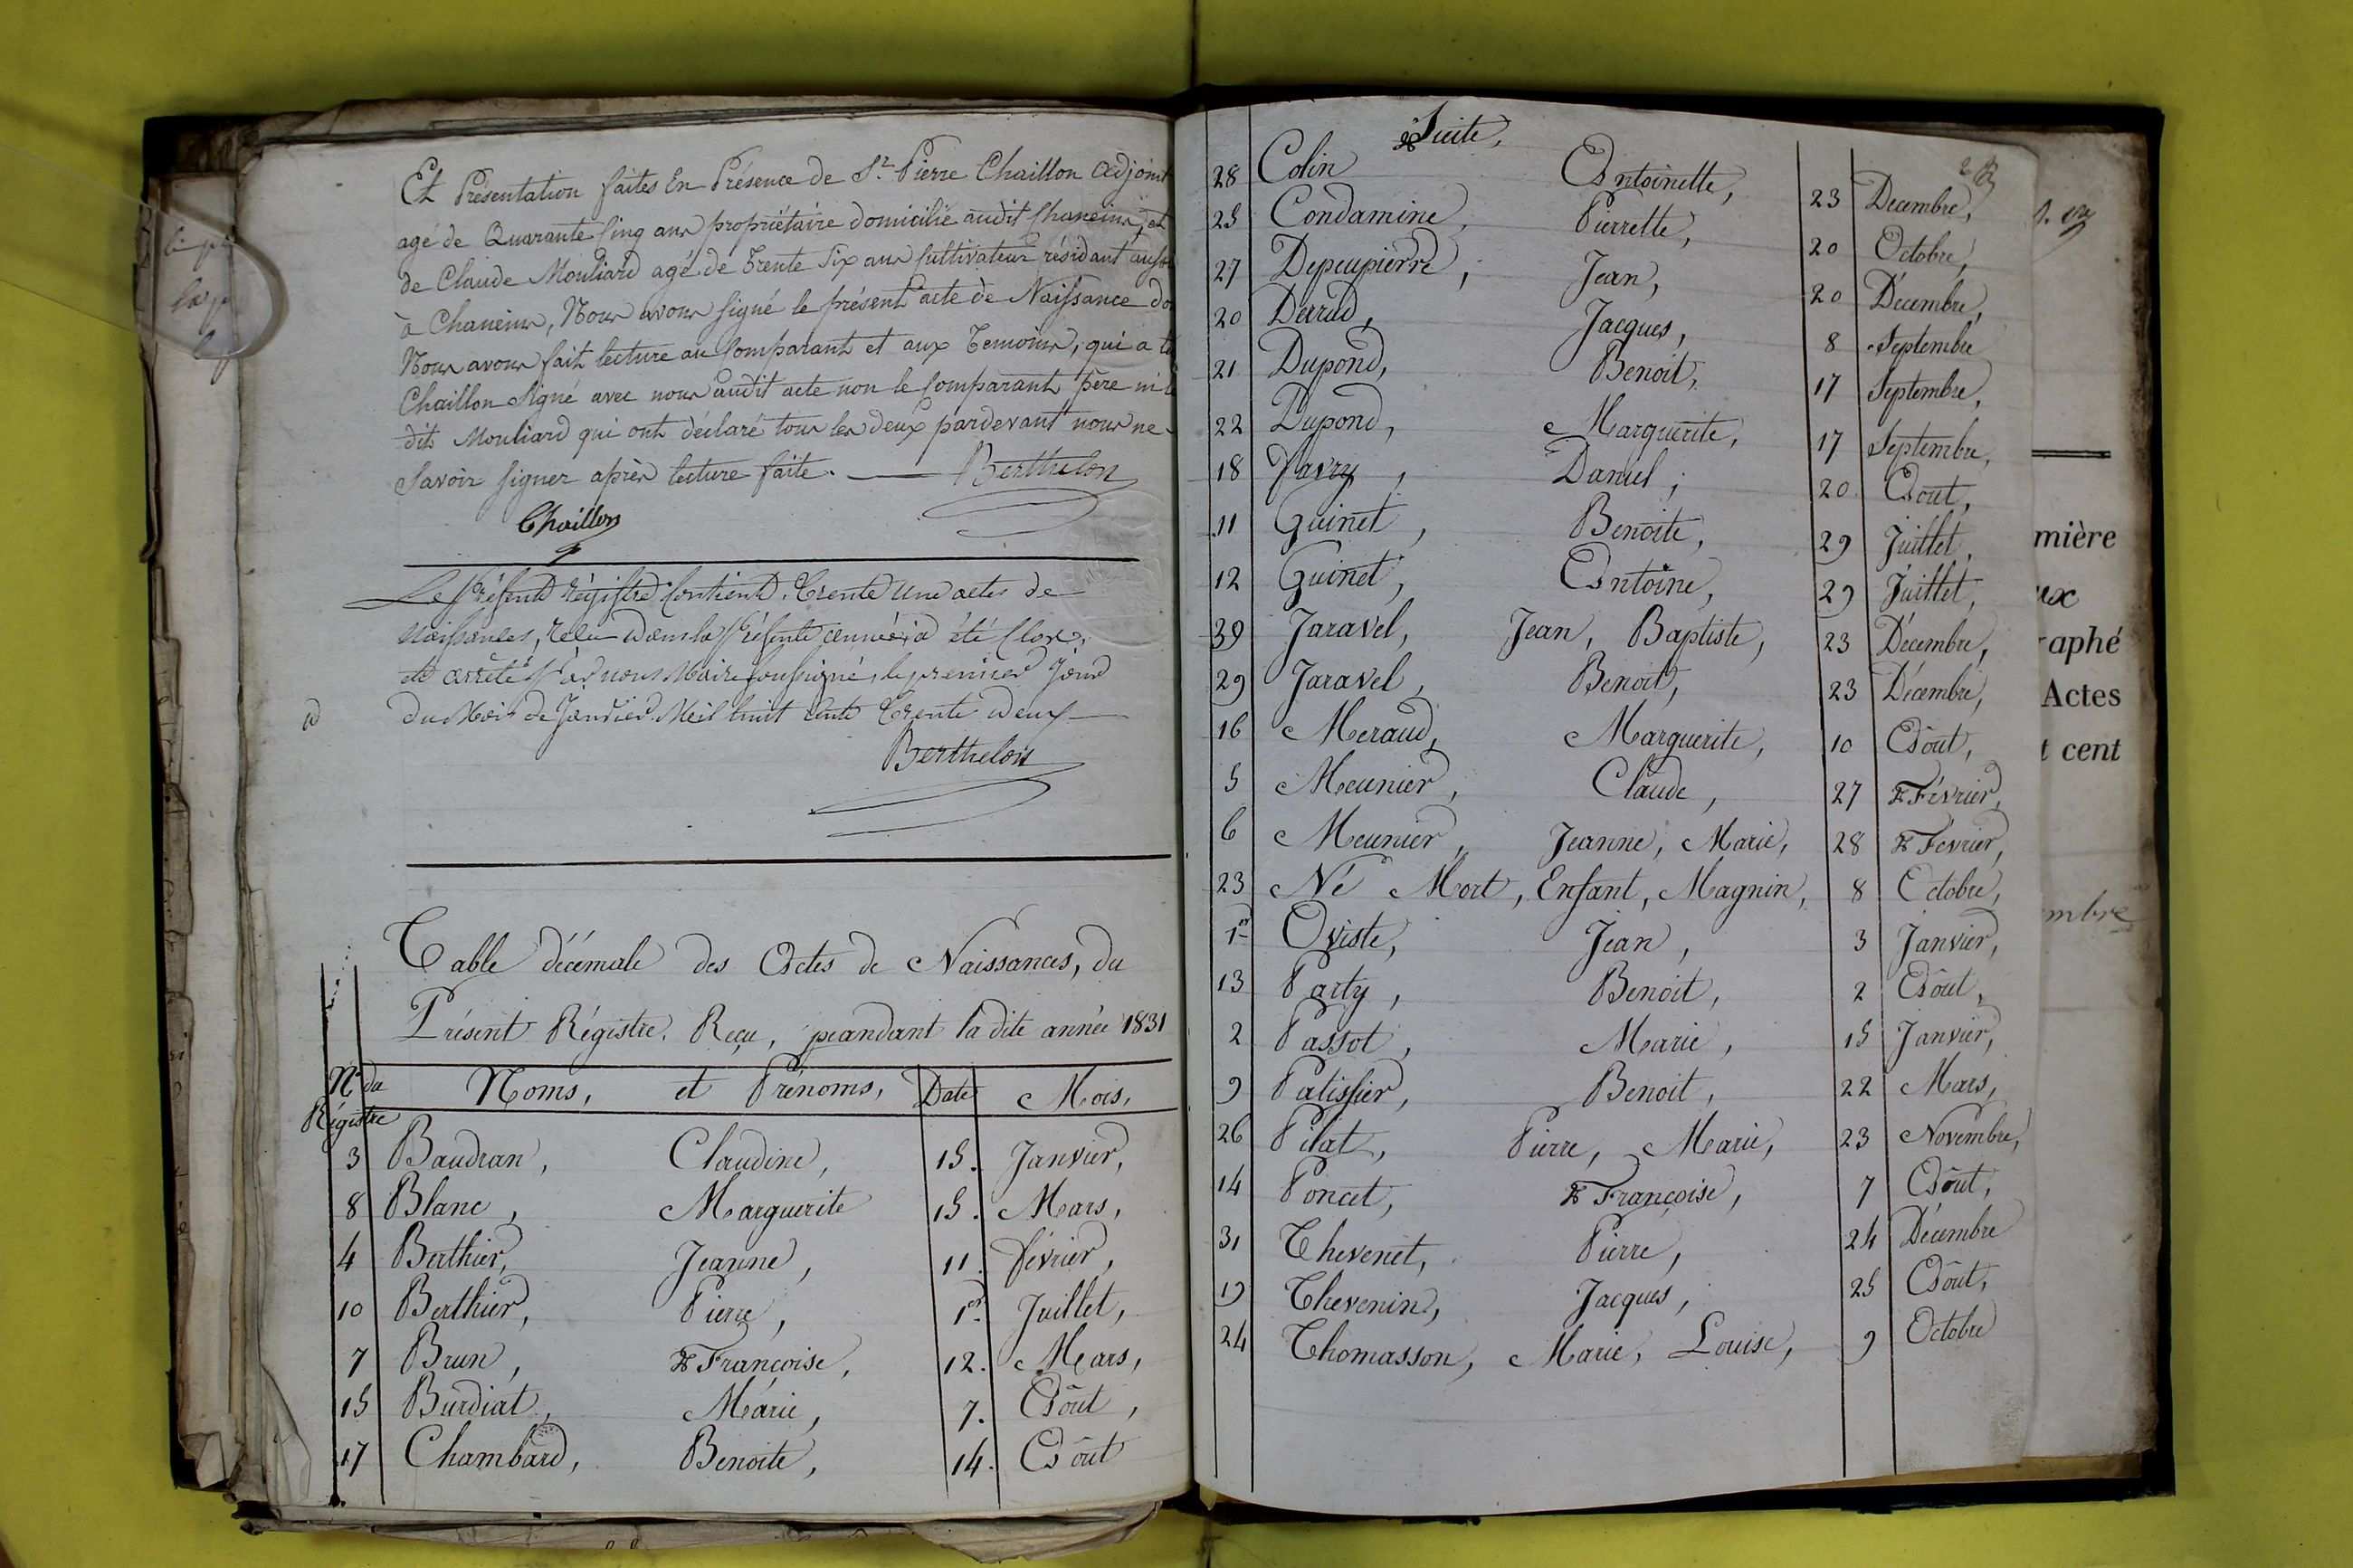 Et Présentation faites En Présence de Sr. Pierre Chaillon Adjoint
agé de Quarante Cinq ans propriétaire domicilié audit Chaneins, et
de Claude Mouliard agé de Trente Six ans Cultivateur résidant aussi
à Chaneins, Nous avons signé le présent acte de Naissance do
Nous avons fait lecture au Comparant et aux Temoins, qui a
Chaillon Signé avec nous audit acte non le Comparant père ni
dit Mouliard qui ont déclaré tous les deux pardevant nous ne
Savoir Signer après lecture faite. Berthelon
Chaillon
Le Présent Régistre Contient Trente une actes de
Naissances, reçu dans la Présente année, a été Clos,
et arrêté Par nous Maire soussigné, le premier Jour
du Mois de Janvier Meil huit cent Trente deux
Berthelon
Table décémale des Actes de Naissances, du
Présent Régistre. Reçu, peandant la dite année 1831
No. du Régistre Noms, et Prénoms, Date Mois,
3 Baudran, Claudine, 15. Janvier,
8 Blanc, Marguerite 15. Mars,
4 Berthier, Jeanne, 11. février,
10 Berthier, Pierre, 1er. Juillet,
7 Brun, Françoise, 12. Mars,
15 Burdiat, Marie, 7. Août,
17 Chambard, Benoite, 14. Août
Suite,
28 Colin Antoinette, 23 Decembre,
25 Condamine, Pierrette, 20 Octobre,
27 Depeupierre, Jean, 20 Décembre,
20 Derrud, Jacques, 8 Septembre
21 Dupond, Benoit, 17 Septembre,
22 Dupond, Marguerite, 17 Septembre,
18 favry, Daniel, 20 Août,
11 Guinet, Benoite, 29 Juillet,
12 Guinet, Antoine, 29 Juillet,
39 Jaravel, Jean, Baptiste, 23 Décembre,
29 Jaravel, Benoit, 23 Décembre,
16 Meraud, Marguerite, 10 Août,
5 Meunier, Claude, 27 Février,
6 Meunier, Jeanne, Marie, 28 Février,
23 Né Mort, Enfant, Magnin, 8 Octobre,
1er Oviste, Jean, 3 Janvier,
13 Party, Benoit, 2 Août,
2 Passot, Marie, 15 Janvier,
9 Patissier, Benoit, 22 Mars,
26 Pilat, Pierre, Marie, 23 Novembre,
14 Poncet, Françoise, 7 Août,
31 Thevenet, Pierre, 24 Décembre
19 Thevenin, Jacques, 25 Août,
24 Thomasson, Marie, Louise, 9 Octobre
mière
ux
raphé
Actes
t cent
embre